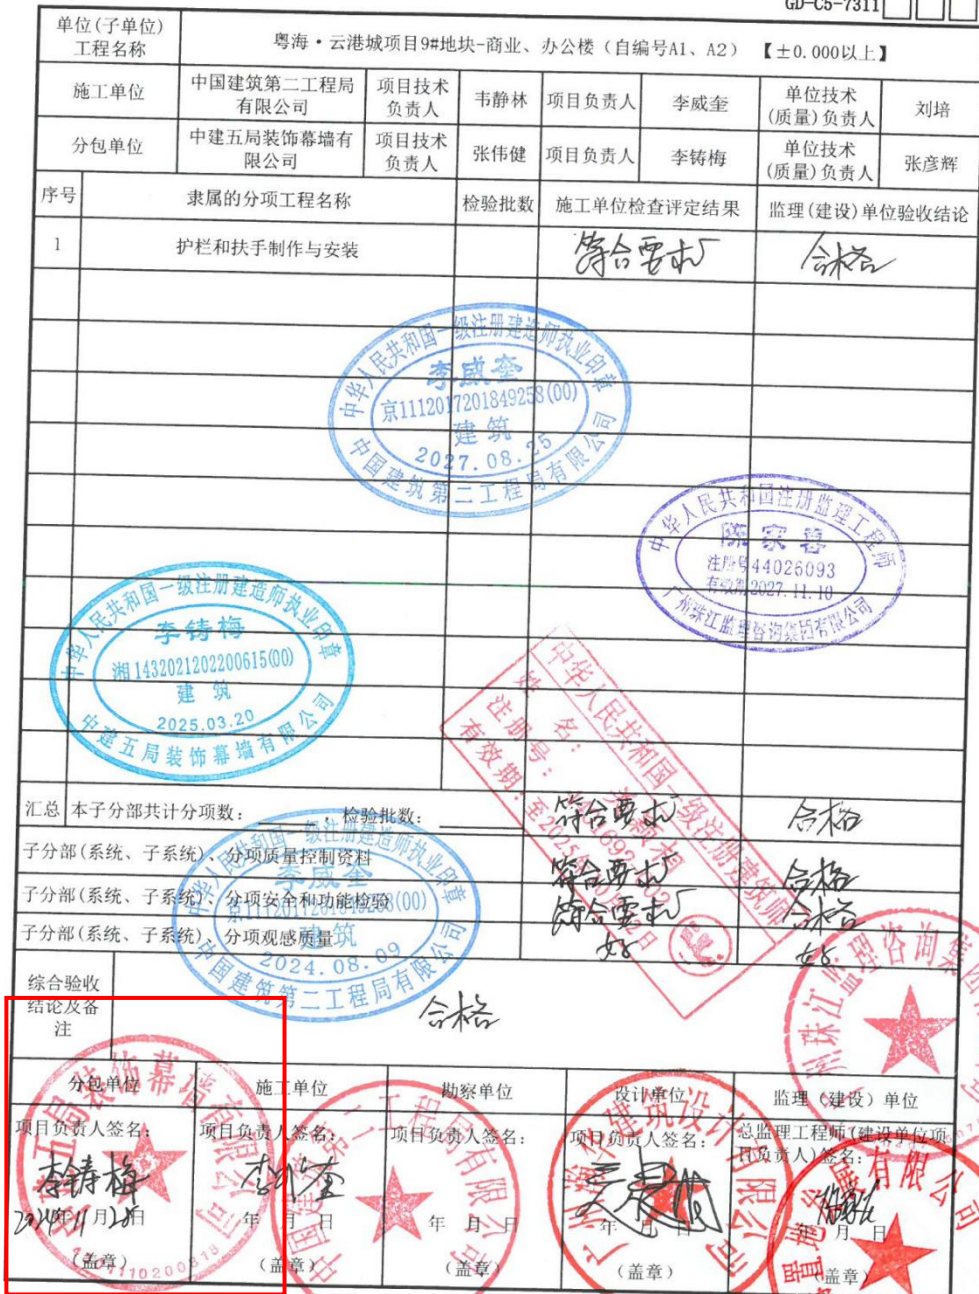 GD-C5-7311
单位(子单位)
工程名称
粤海·云港城项目9#地块-商业、办公楼（自编号A1、A2） 【±0.000以上】
施工单位
中国建筑第二工程局
有限公司
项目技术
负责人
韦静林
项目负责人
李威奎
单位技术
(质量)负责人
刘培
分包单位
中建五局装饰幕墙有
限公司
项目技术
负责人
张伟健
项目负责人
李铸梅
单位技术
(质量)负责人
张彦辉
序号
隶属的分项工程名称
检验批数
施工单位检查评定结果
监理(建设)单位验收结论
1
护栏和扶手制作与安装
符合要求
合格
中华人民共和国一级注册建造师执业印章
李威奎
京1112017201849258(00)
建筑
2027.08.25
中国建筑第二工程局有限公司
中华人民共和国注册监理工程师
注册号44026093
有效期2027.11.10
广州珠江监理咨询集团有限公司
中华人民共和国一级注册建造师执业印章
李铸梅
湘1432021202200615(00)
建筑
2025.03.20
中建五局装饰幕墙有限公司
中华人民共和国一级注册建筑师
姓名：
注册号：
有效期：至2025年
汇总
本子分部共计分项数： ，检验批数：
符合要求
合格
子分部(系统、子系统)、分项质量控制资料
符合要求
合格
子分部(系统、子系统)、分项安全和功能检验
符合要求
合格
子分部(系统、子系统)、分项观感质量
好
好
中华人民共和国一级注册建造师执业印章
李威奎
京1112017201849258(00)
建筑
2024.08.09
中国建筑第二工程局有限公司
综合验收
结论及备
注
合格
分包单位
施工单位
勘察单位
设计单位
监理（建设）单位
项目负责人签名：
项目负责人签名：
项目负责人签名：
项目负责人签名：
总监理工程师(建设单位项
目负责人)签名：
李铸梅
李威奎
2024年11月28日
年 月 日
年 月 日
年 月 日
年 月 日
（盖章）
（盖章）
（盖章）
（盖章）
（盖章）